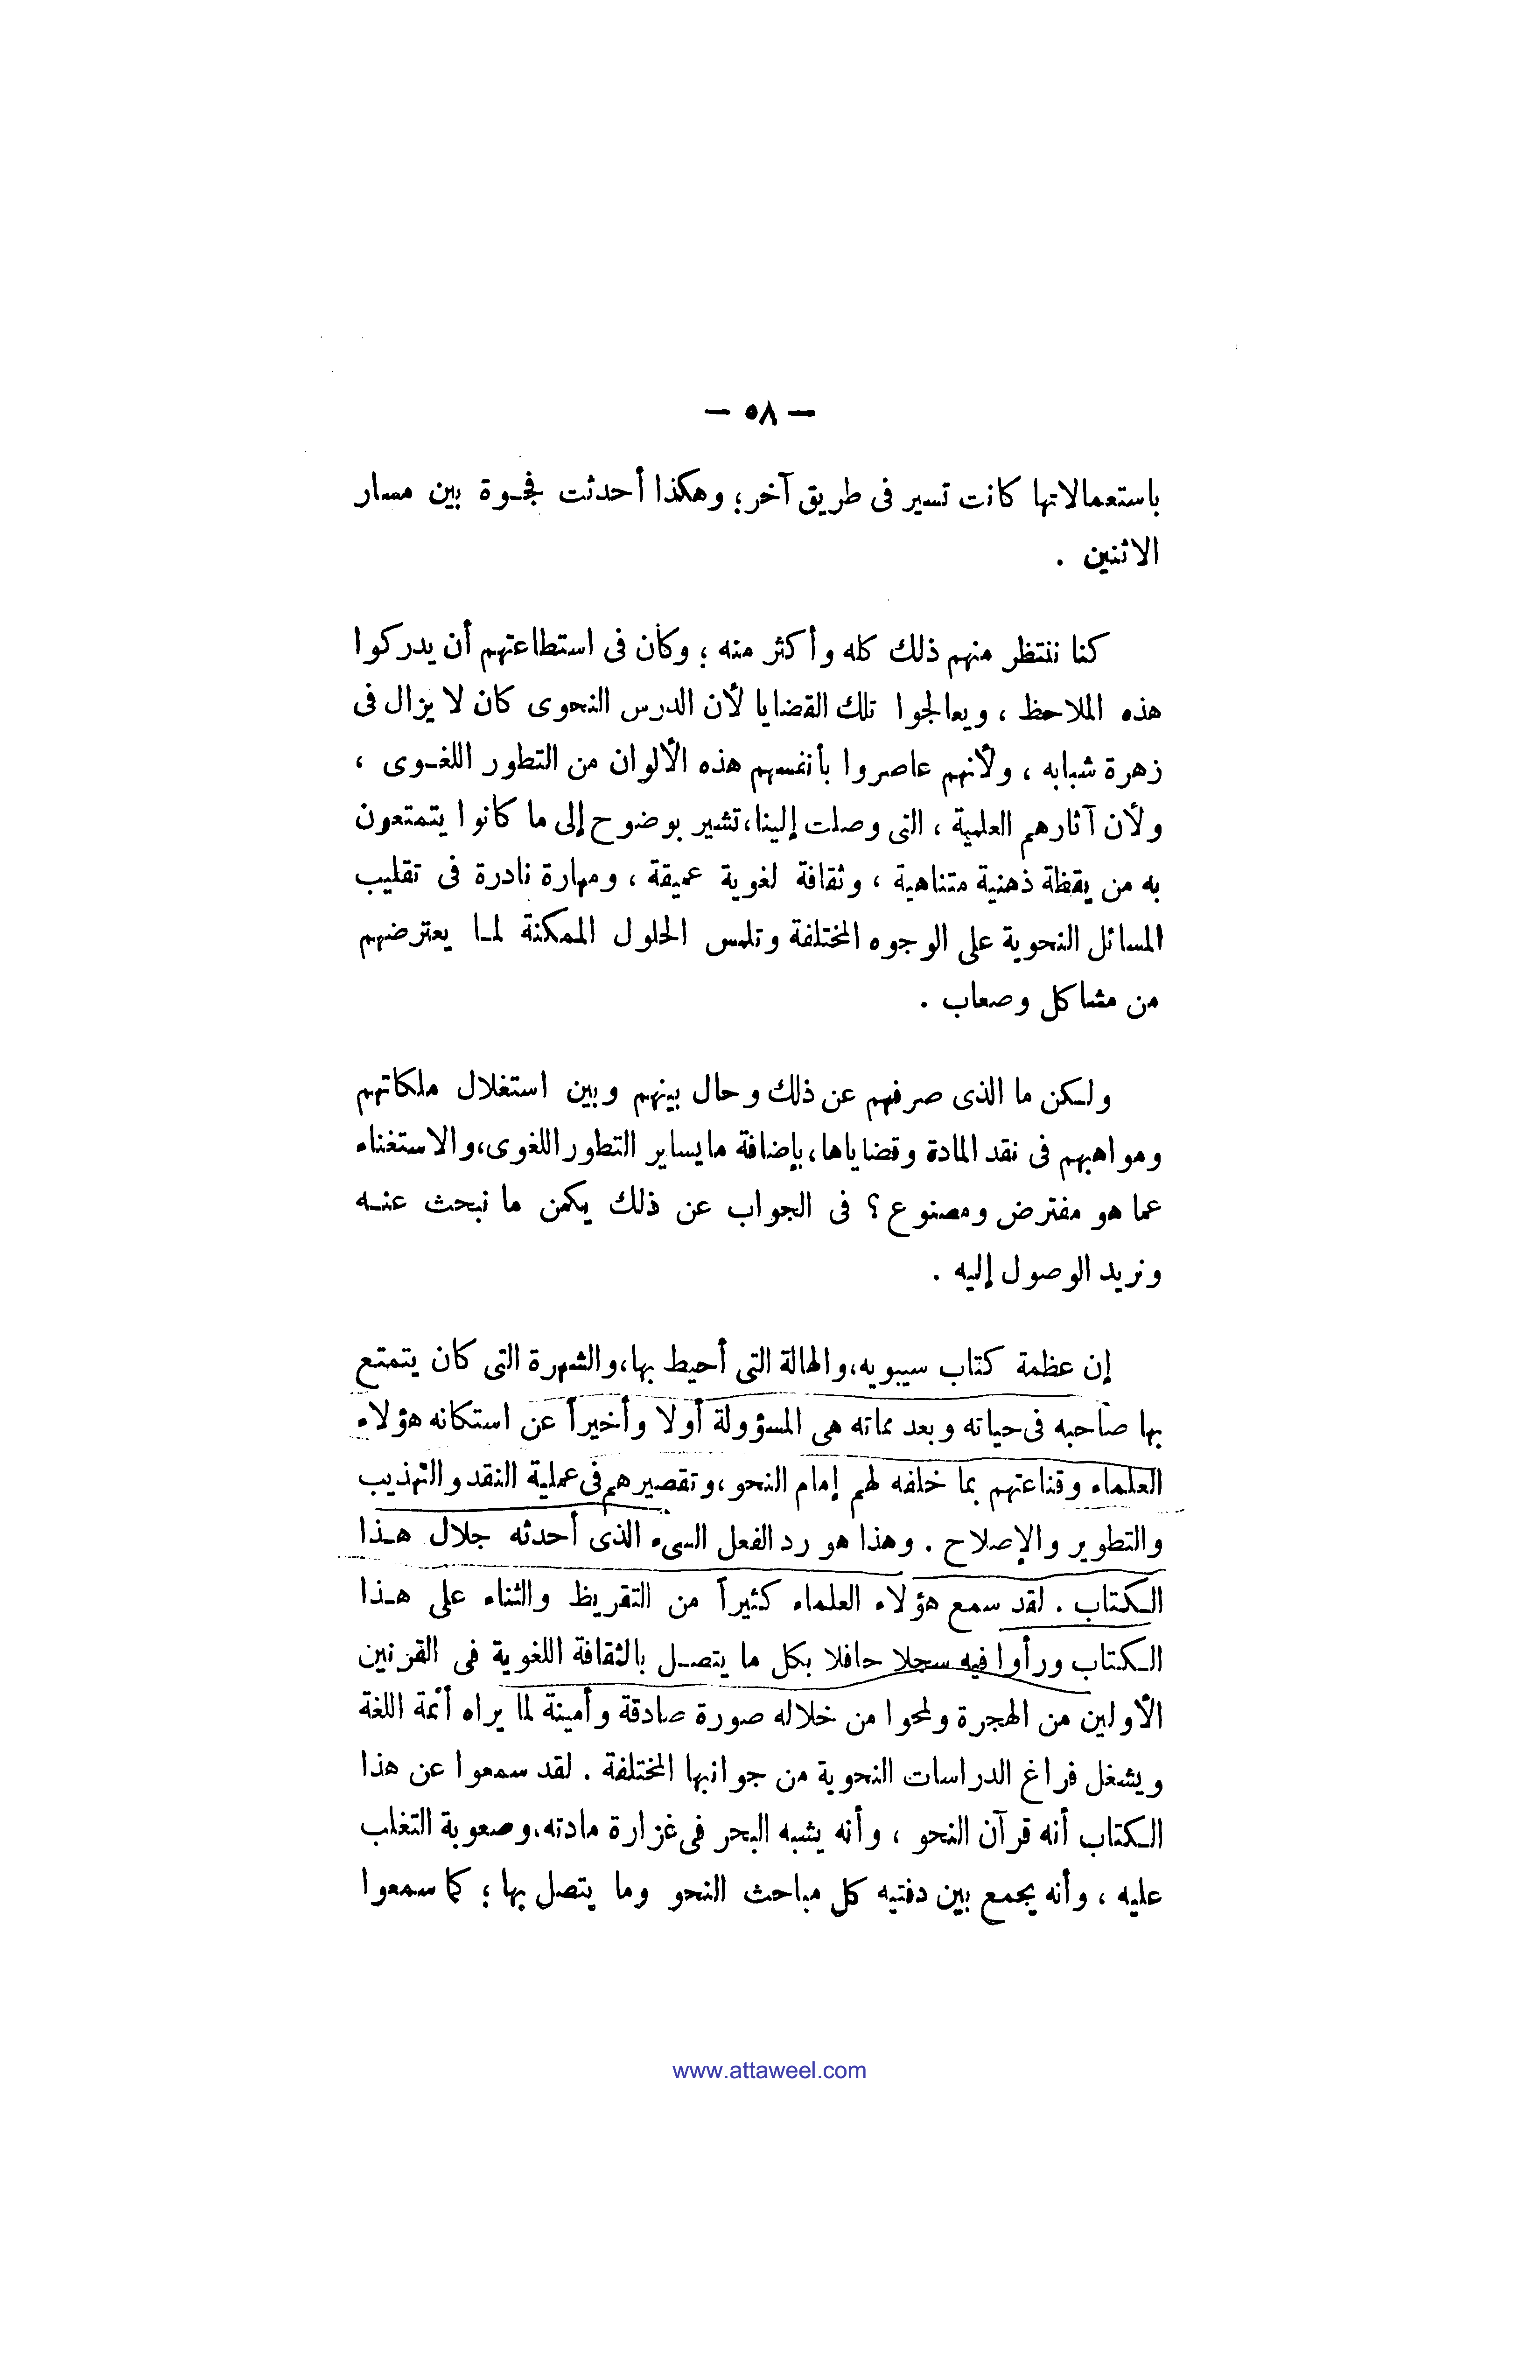 — ٥٨ —
باستعمالاتها كانت تسير فى طريق آخر؛ وهكذا أحدثت فجـوة بين مسار
الاثنين .
كنا ننتظر منهم ذلك كله وأكثر منه ؛ وكان فى استطاعتهم أن يدركوا
هذه الملاحظ ، ويعالجوا تلك القضايا لأن الدرس النحوى كان لا يزال فى
زهرة شبابه ، ولأنهم عاصروا بأنفسهم هذه الألوان من التطور اللغـوى ،
ولأن آثارهم العلمية ، التى وصلت إلينا، تشير بوضوح إلى ما كانوا يتمتعون
به من يقظة ذهنية متناهية ، وثقافة لغوية عميقة ، ومهارة نادرة فى تقليب
المسائل النحوية على الوجوه المختلفة وتلمس الحلول الممكنة لمـا يعترضهم
من مشاكل وصعاب .
ولكن ما الذى صرفهم عن ذلك وحال بينهم وبين استغلال ملكاتهم
ومواهبهم فى نقد المادة وقضاياها، بإضافة ما يساير التطور اللغوى، والاستغناء
عما هو مفترض ومصنوع ؟ فى الجواب عن ذلك يكمن ما نبحث عنـه
ونريد الوصول إليه .
إن عظمة كتاب سيبويه، والهالة التى أحيط بها، والشهرة التى كان يتمتع
بها صاحبه فى حياته وبعد مماته هى المسؤولة أولا وأخيراً عن استكانه هؤلاء
العلماء وقناعتهم بما خلفه لهم إمام النحو، وتقصيرهم فى عملية النقد والتهذيب
والتطوير والإصلاح . وهذا هو رد الفعل السىء الذى أحدثه جلال هـذا
الـكتاب . لقد سمع هؤلاء العلماء كثيراً من التقريظ والثناء على هـذا
الـكتاب ورأوا فيه سجلا حافلا بكل ما يتصـل بالثقافة اللغوية فى القرنين
الأولين من الهجرة ولمحوا من خلاله صورة صادقة وأمينة لما يراه أئمة اللغة
ويشغل فراغ الدراسات النحوية من جوانبها المختلفة . لقد سمعوا عن هذا
الـكتاب أنه قرآن النحو ، وأنه يشبه البحر فى غزارة مادته، وصعوبة التغلب
عليه ، وأنه يجمع بين دفتيه كل مباحث النحو وما يتصل بها ؛ كما سمعوا
www.attaweel.com